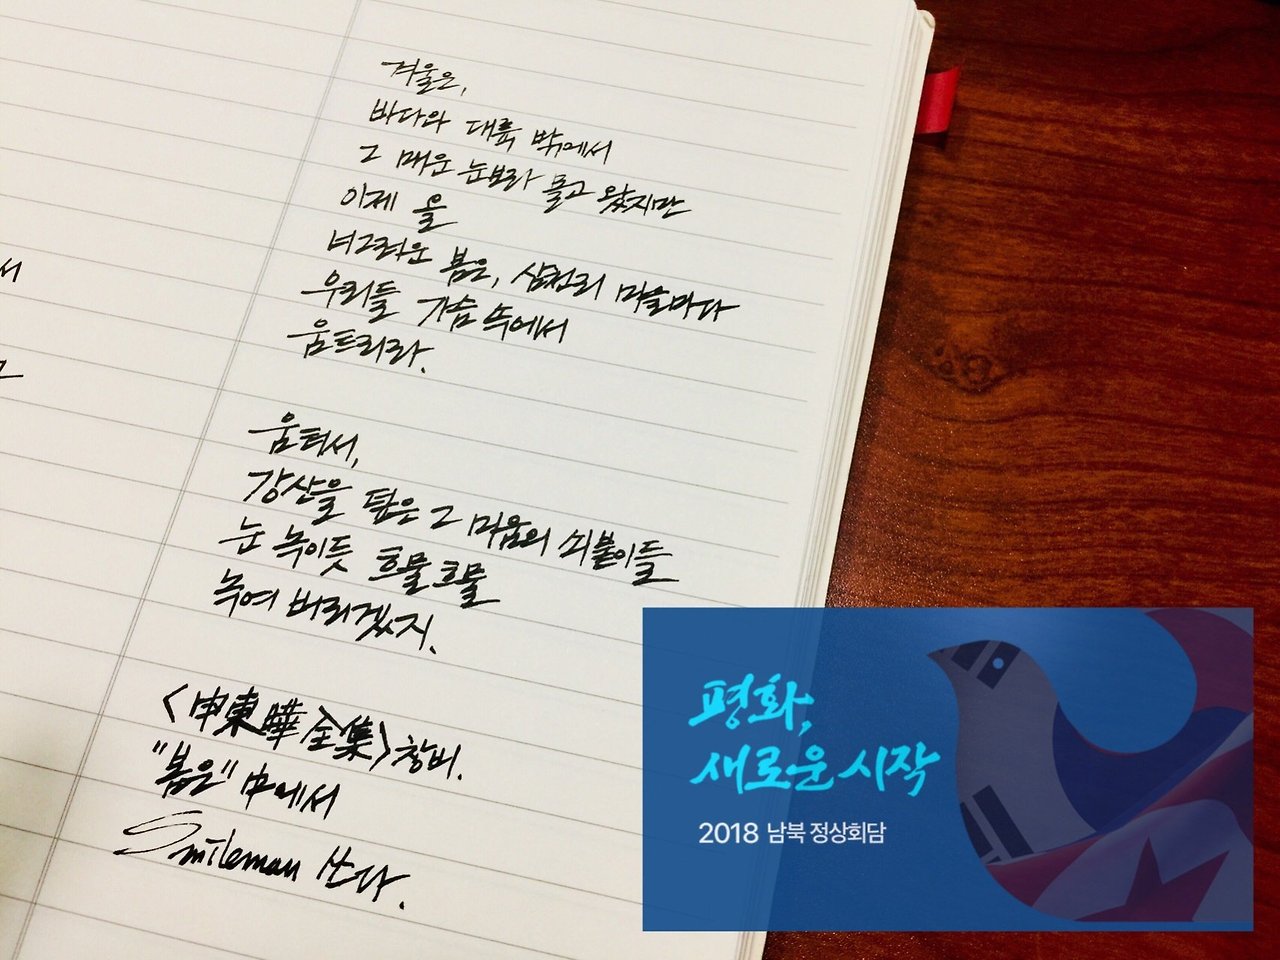 겨울은,
바다와 대륙 밖에서
그 매운 눈보라 몰고 왔지만
이제 올
너그러운 봄은, 삼천리 마을마다
우리들 가슴 속에서
움트리라.
움터서,
강산을 덮은 그 미움의 쇠붙이들
눈 녹이듯 흐물흐물
녹여 버리겠지.
<申東曄全集> 창비.
"봄은" 中에서
Smileman 쓰다.
서
고
평화,
새로운 시작
2018 남북 정상회담